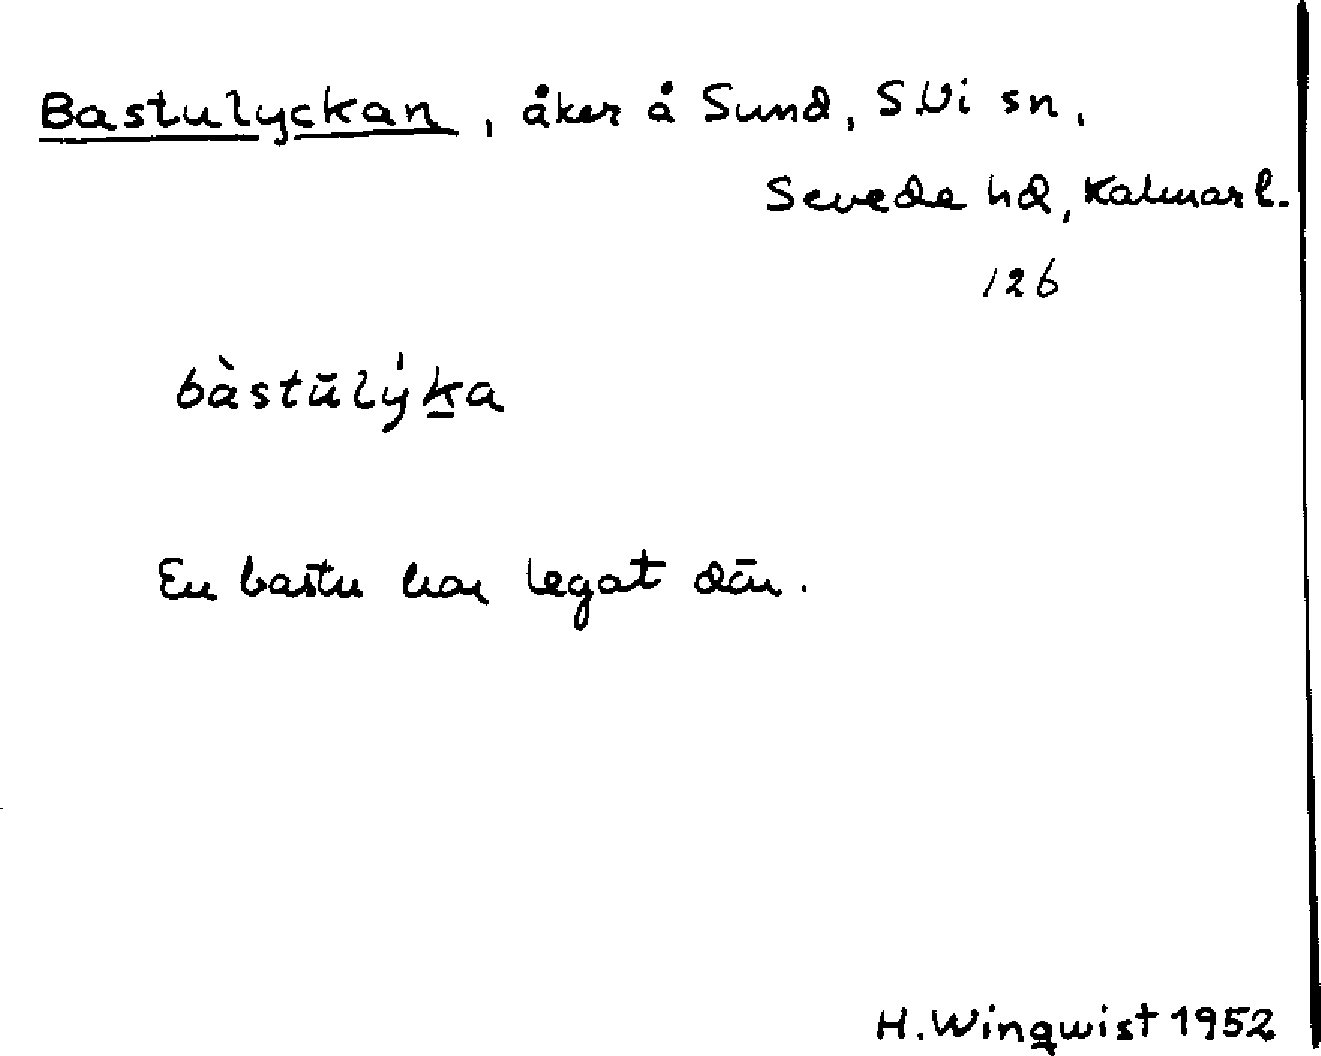 Bastulyckan, åker å Sund, S.Vi sn,
Sevede hd, Kalmar l.
126
bàstūlýk̲a
En bastu har legat där.
H. Winqwist 1952